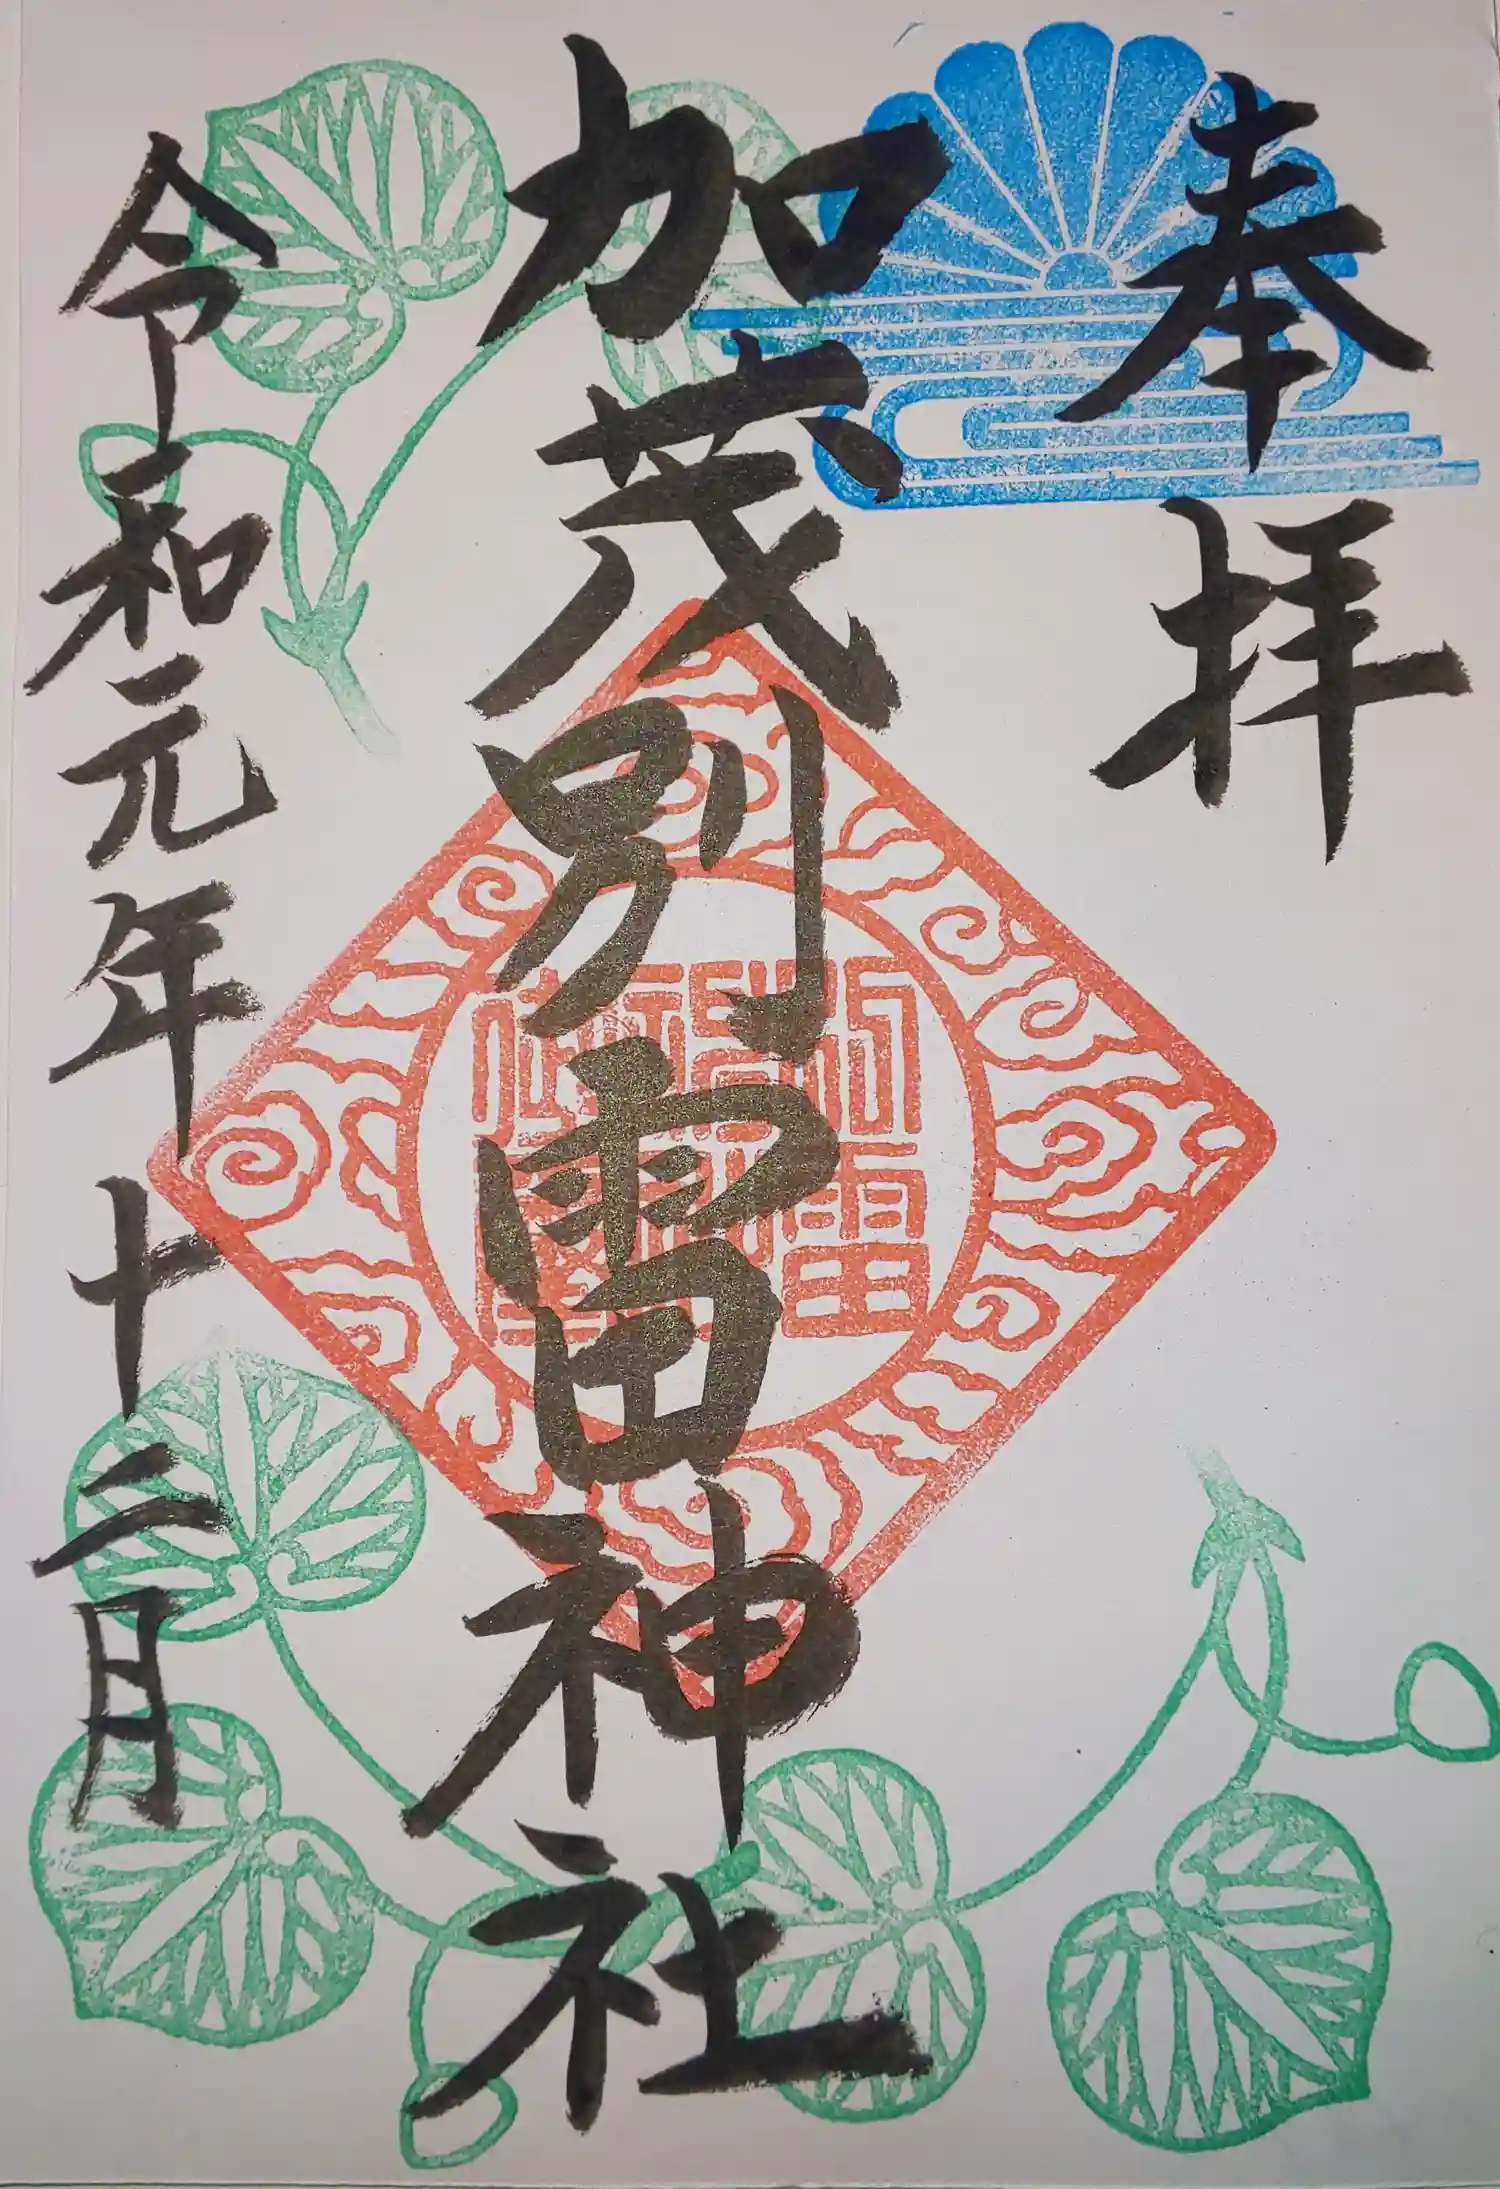 奉拝
加茂別雷神社
令和元年十二月